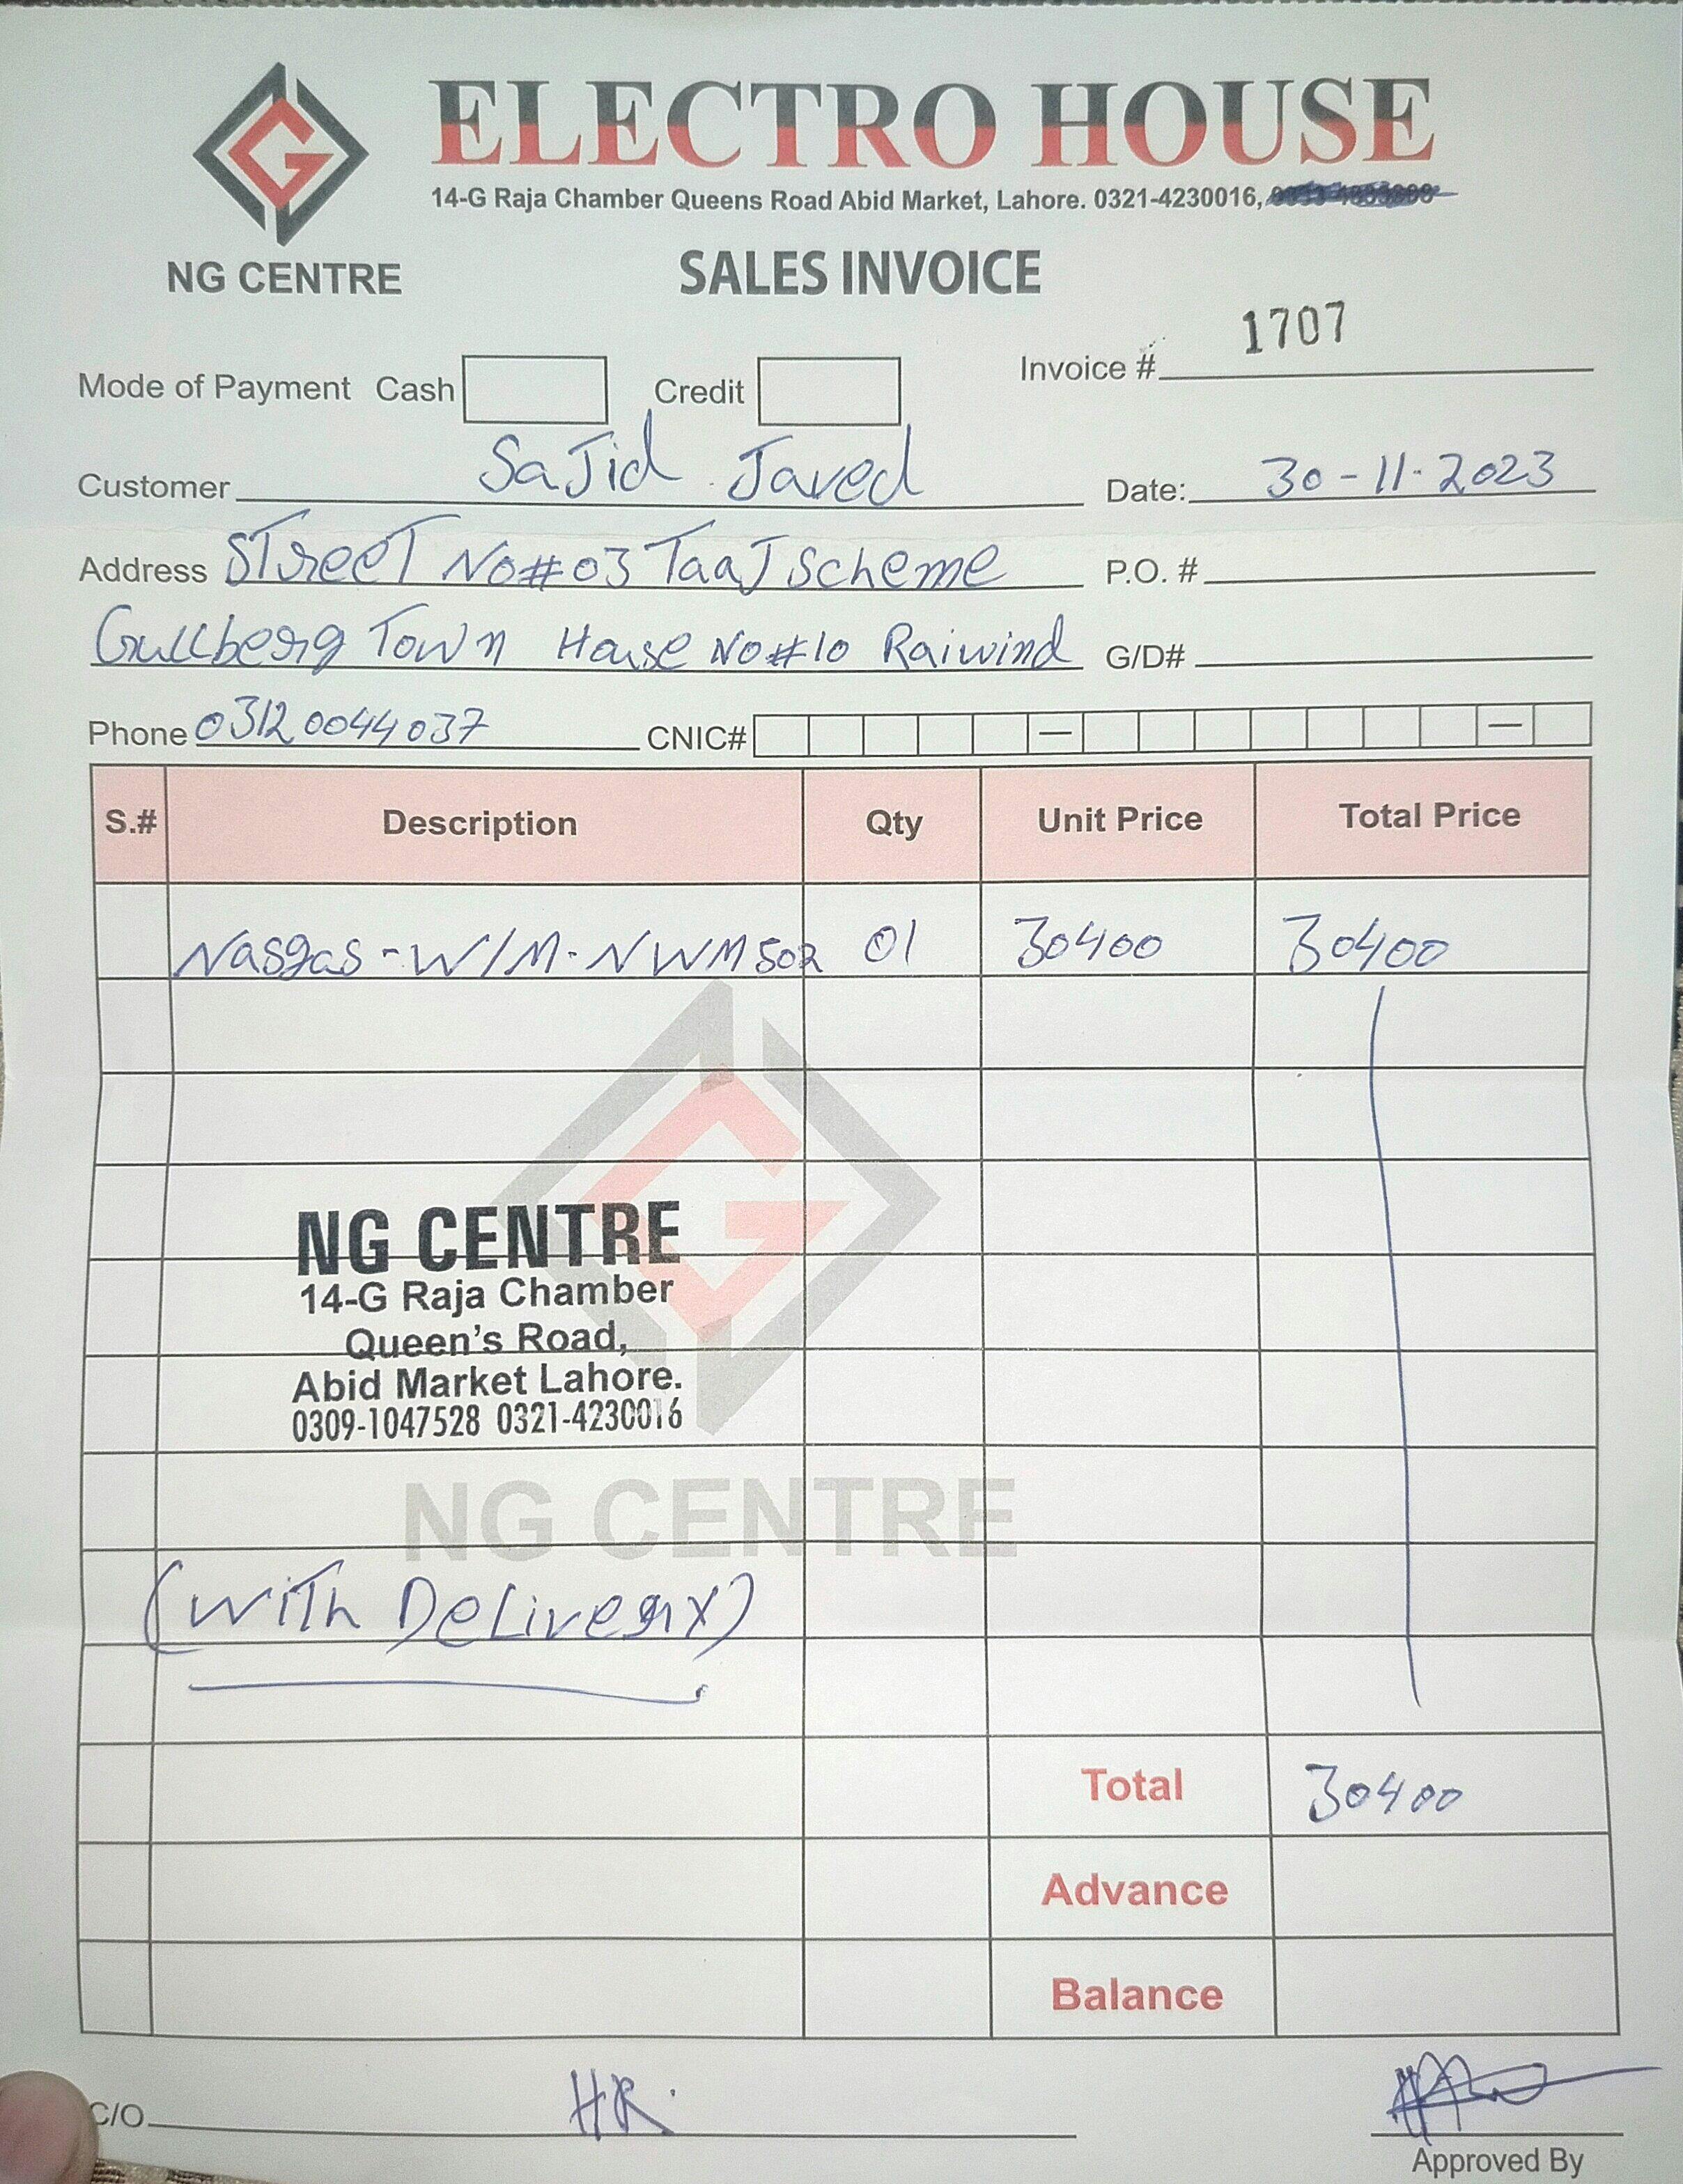 ELECTRO HOUSE
14-G Raja Chamber Queens Road Abid Market, Lahore. 0321-4230016,
NG CENTRE
SALES INVOICE
Invoice # 1707
Mode of Payment Cash Credit
Customer Sajid Javed Date: 30-11-2023
Address Street No#03 Taaj Scheme P.O. #
Gullberg Town House No#10 Raiwind G/D#
Phone 03120044037 CNIC# — —
S.# Description Qty Unit Price Total Price
Nasgas-W/M-NWM502 01 30400 30400
NG CENTRE
14-G Raja Chamber
Queen's Road,
Abid Market Lahore.
0309-1047528 0321-4230016
NG CENTRE
(With Delivery)
Total 30400
Advance
Balance
C/O HR.
Approved By